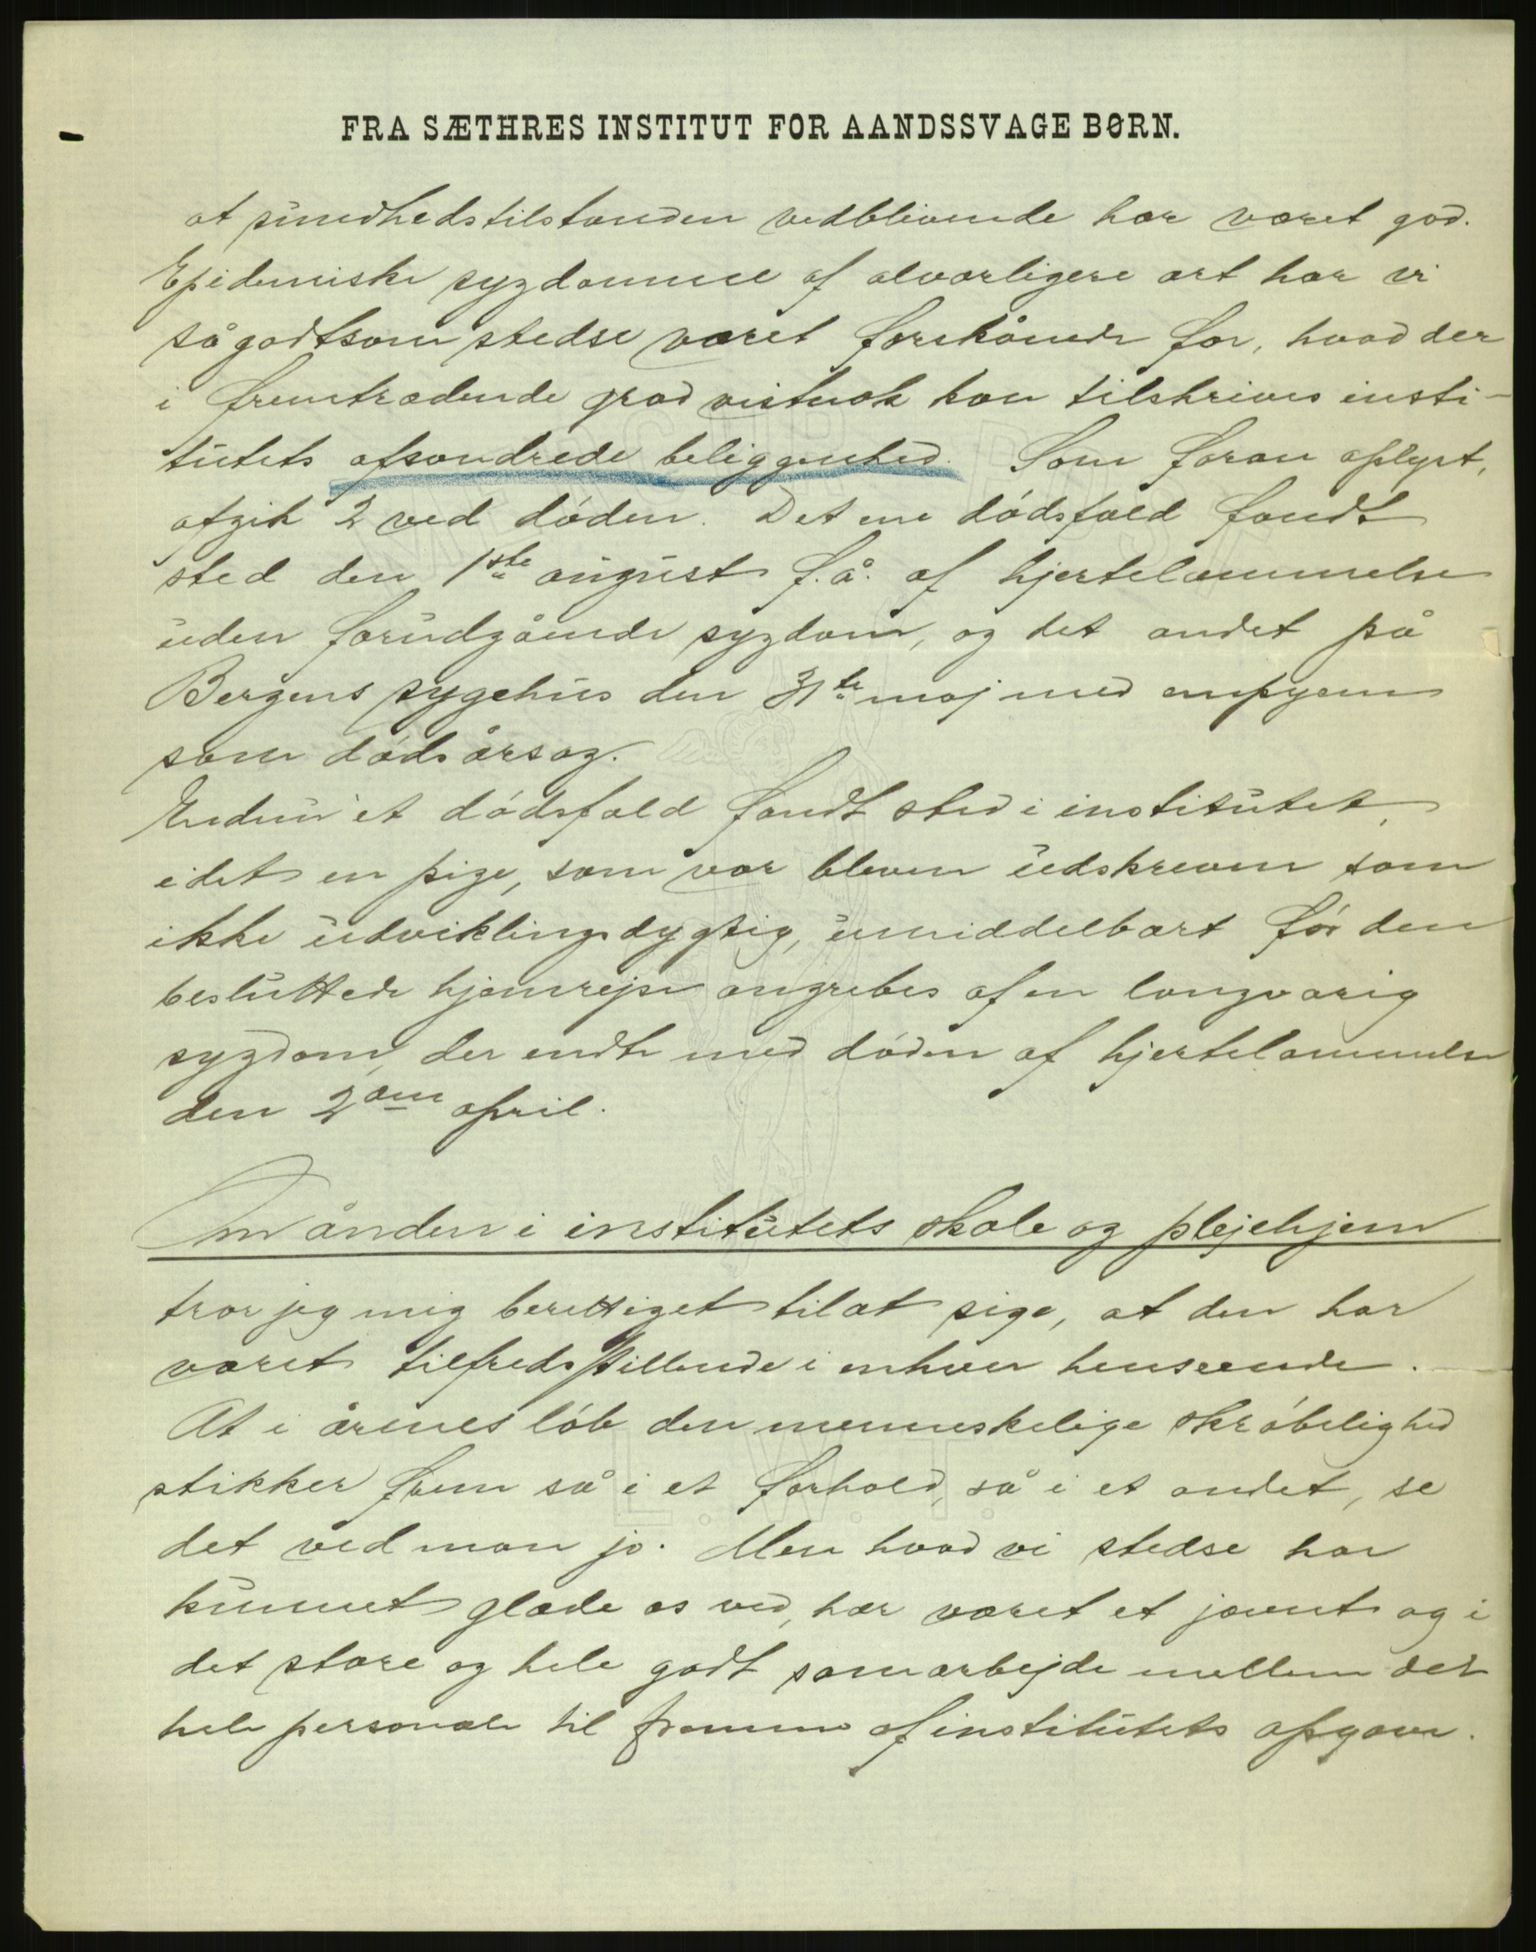 FRA SÆTHRES INSTITUT FOR AANDSSVAGE BØRN.
at sundhedstilstanden vedblivende har været god.
Epidemiske sygdomme af alvorligere art har vi
så godtsom stedse været forskånede for, hvad der
i fremtrædende grad vistnok kan tilskrives insti-
tutets afsondrede beliggenhed. Som foran oplyst,
afgik 2 ved døden. Det ene dødsfald fandt
sted den 1ste august f. å. af hjertelammelse
uden forudgående sygdom, og det andet på
Bergens sygehus den 31te maj med empyem
som dødsårsag.
Endnu et dødsfald fandt sted i institutet,
idet en pige, som var bleven udskreven som
ikke udviklingsdygtig, umiddelbart før den
besluttede hjemrejse angrebes af en langvarig
sygdom, der endte med døden af hjertelammelse
den 2den april.
Om ånden i institutets skole og plejehjem
tror jeg mig berettiget til at sige, at den har
været tilfredsstillende i enhver henseende.
At i årenes løb den menneskelige skrøbelighed
stikker frem så i et forhold, så i et andet, se
det ved man jo. Men hvad vi stedse har
kunnet glæde os ved, har været et jævnt og i
det store og hele godt samarbejde mellem det
hele personale til fremme af institutets opgave.
L.W.T.